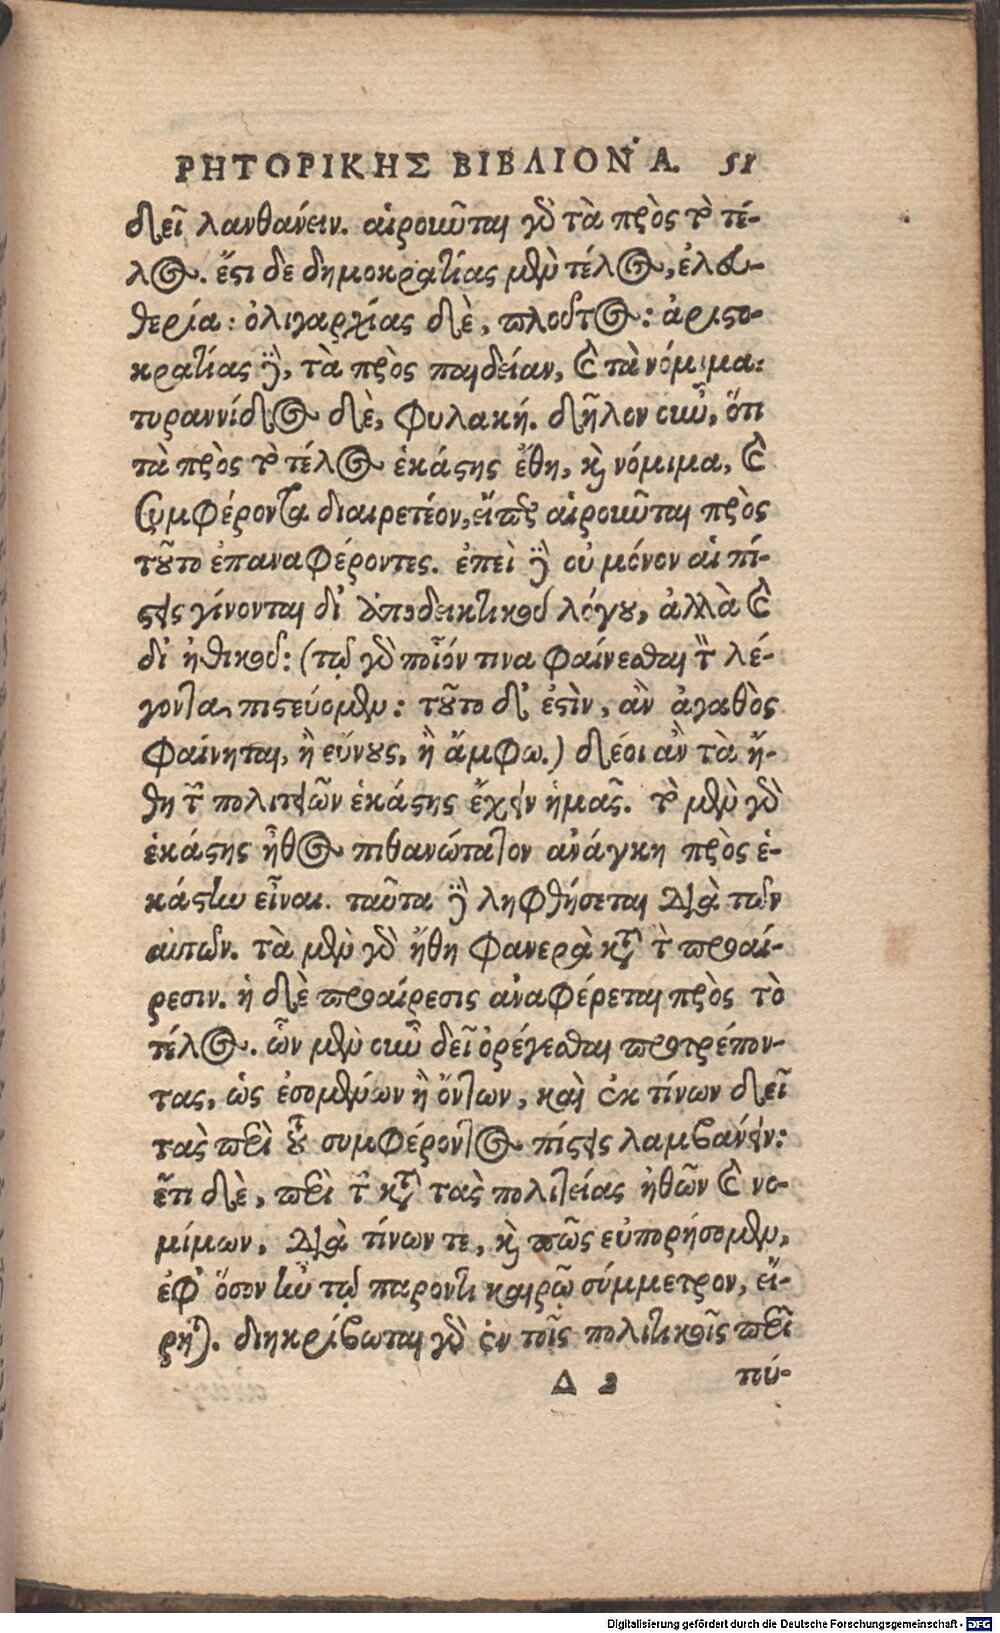 ΡΗΤΟΡΙΚΗΣ ΒΙΒΛΙΟΝ Α. 51
δεῖ λανθάνειν. αἱροῦνται γὰρ τὰ πρὸς τὸ τέ-
λος. ἔστι δὲ δημοκρατίας μὲν τέλος, ἐλευ-
θερία: ὀλιγαρχίας δὲ, πλοῦτος: ἀριστο-
κρατίας δὲ, τὰ πρὸς παιδείαν, καὶ τὰ νόμιμα:
τυραννίδος δὲ, φυλακή. δῆλον οὖν, ὅτι
τὰ πρὸς τὸ τέλος ἑκάστης ἔθη, καὶ νόμιμα, καὶ
συμφέροντα διαιρετέον, εἴπερ αἱροῦνται πρὸς
τοῦτο ἐπαναφέροντες. ἐπεὶ δὲ οὐ μόνον αἱ πί-
στεις γίνονται δι' ἀποδεικτικοῦ λόγου, ἀλλὰ καὶ
δι' ἠθικοῦ: (τῷ γὰρ ποῖόν τινα φαίνεσθαι τὸν λέ-
γοντα, πιστεύομεν: τοῦτο δ' ἐστὶν, ἂν ἀγαθὸς
φαίνηται, ἢ εὔνους, ἢ ἄμφω.) δέοι ἂν τὰ ἤ-
θη τῶν πολιτειῶν ἑκάστης ἔχειν ἡμᾶς. τὸ μὲν γὰρ
ἑκάστης ἦθος πιθανώτατον ἀνάγκη πρὸς ἑ-
κάστην εἶναι. ταῦτα δὲ ληφθήσεται διὰ τῶν
αὐτῶν. τὰ μὲν γὰρ ἤθη φανερὰ κατὰ τὴν προαί-
ρεσιν. ἡ δὲ προαίρεσις ἀναφέρεται πρὸς τὸ
τέλος. ὧν μὲν οὖν δεῖ ὀρέγεσθαι προτρέπον-
τας, ὡς ἐσομένων ἢ ὄντων, καὶ ἐκ τίνων δεῖ
τὰς περὶ τοῦ συμφέροντος πίστεις λαμβάνειν:
ἔτι δὲ, περὶ τῶν κατὰ τὰς πολιτείας ἠθῶν καὶ νο-
μίμων, διὰ τίνων τε, καὶ πῶς εὐπορήσομεν,
ἐφ' ὅσον ἦν τῷ παρόντι καιρῷ σύμμετρον, εἴ-
ρηται. διηκρίβωται γὰρ ἐν τοῖς πολιτικοῖς περὶ
Δ 2 τού-
Digitalisierung gefördert durch die Deutsche Forschungsgemeinschaft - DFG